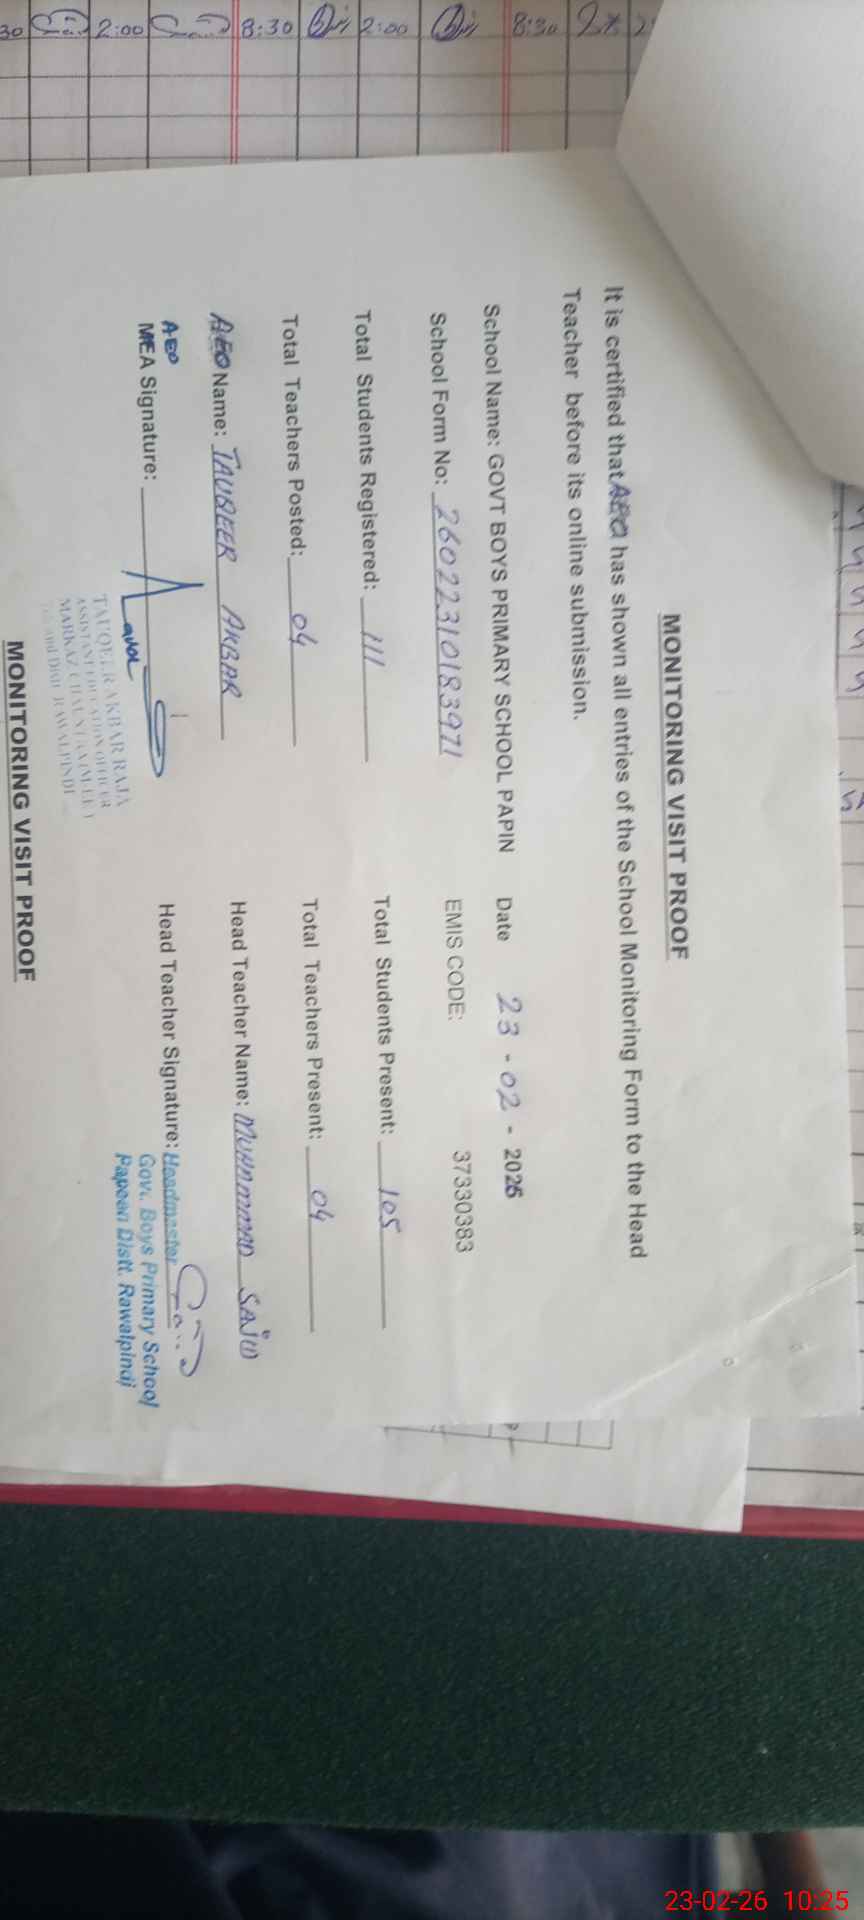 30 2:00 8:30 2:00 8:30
MONITORING VISIT PROOF
It is certified that AEO has shown all entries of the School Monitoring Form to the Head
Teacher before its online submission.
School Name: GOVT BOYS PRIMARY SCHOOL PAPIN Date 23 - 02 - 2026
School Form No: 26022310183971 EMIS CODE: 37330383
Total Students Registered: 111 Total Students Present: 105
Total Teachers Posted: 04 Total Teachers Present: 04
AEO Name: TAUQEER AKBAR Head Teacher Name: MUHAMMAD SAJID
AEO
MEA Signature: Head Teacher Signature: Headmaster
Govt. Boys Primary School
Papeen Distt. Rawalpindi
TAUQEER AKBAR RAJA
ASSISTANT EDUCATION OFFICER
MARKAZ
and Distt RAWALPINDI
MONITORING VISIT PROOF
23-02-26 10:25